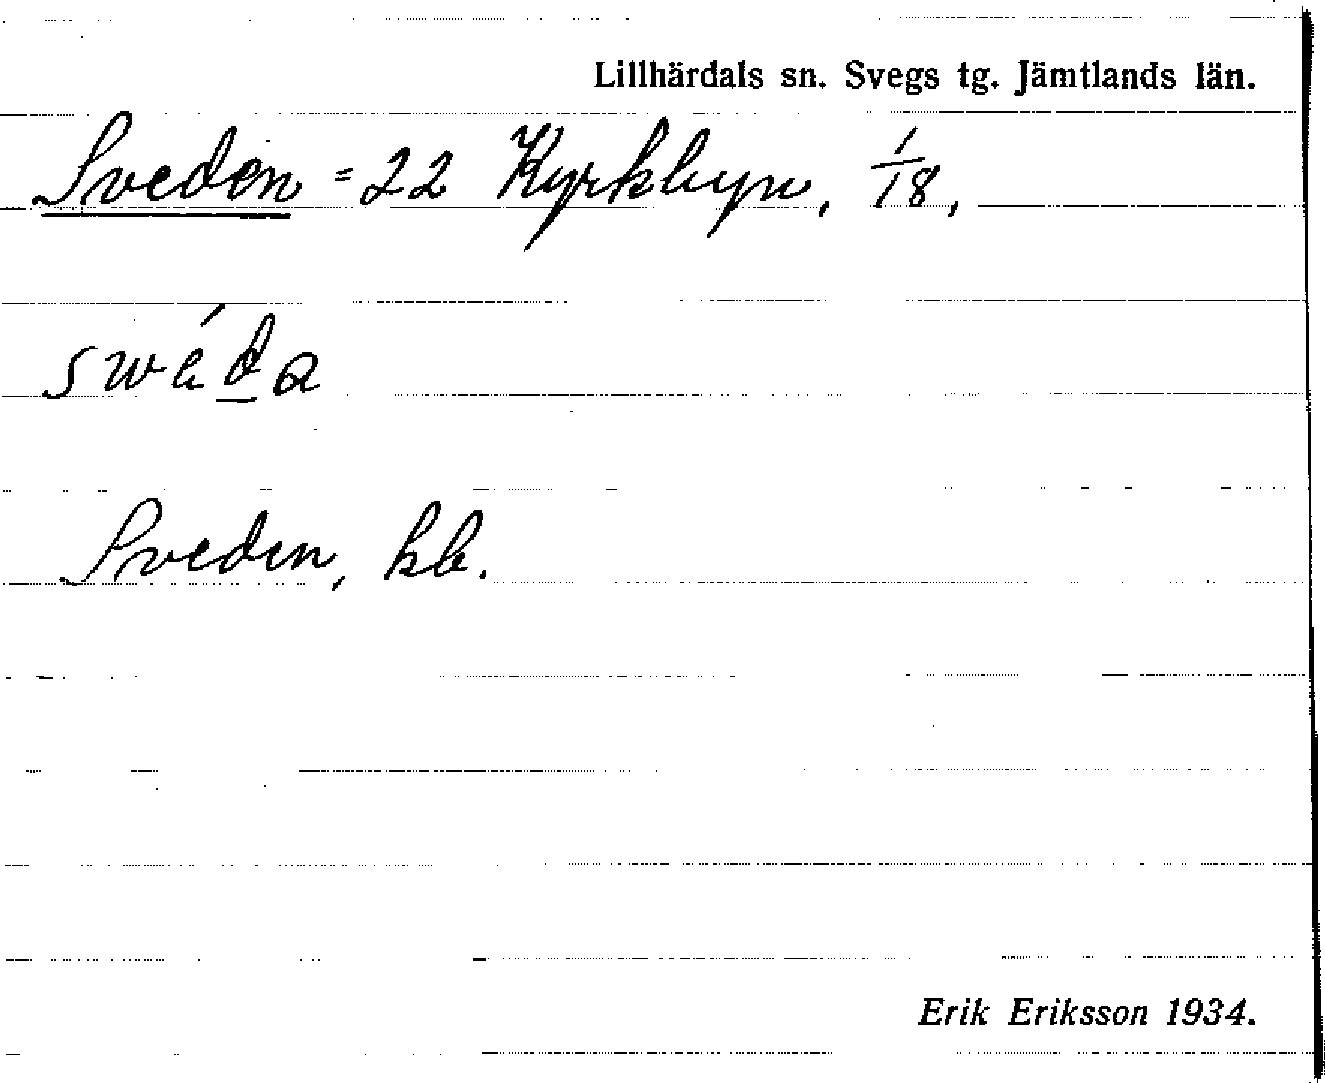 Lillhärdals sn. Svegs tg. Jämtlands län.
Sveden = 22 Kyrkbyn, 1/18,
swéda
Sveden, kb.
Erik Eriksson 1934.